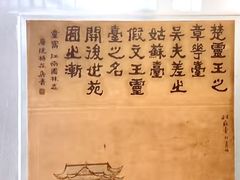 楚靈王之
章華臺
吳夫差之
姑蘇臺
假文王靈
臺之名
開後世苑
囿之漸
童寯江南園林志